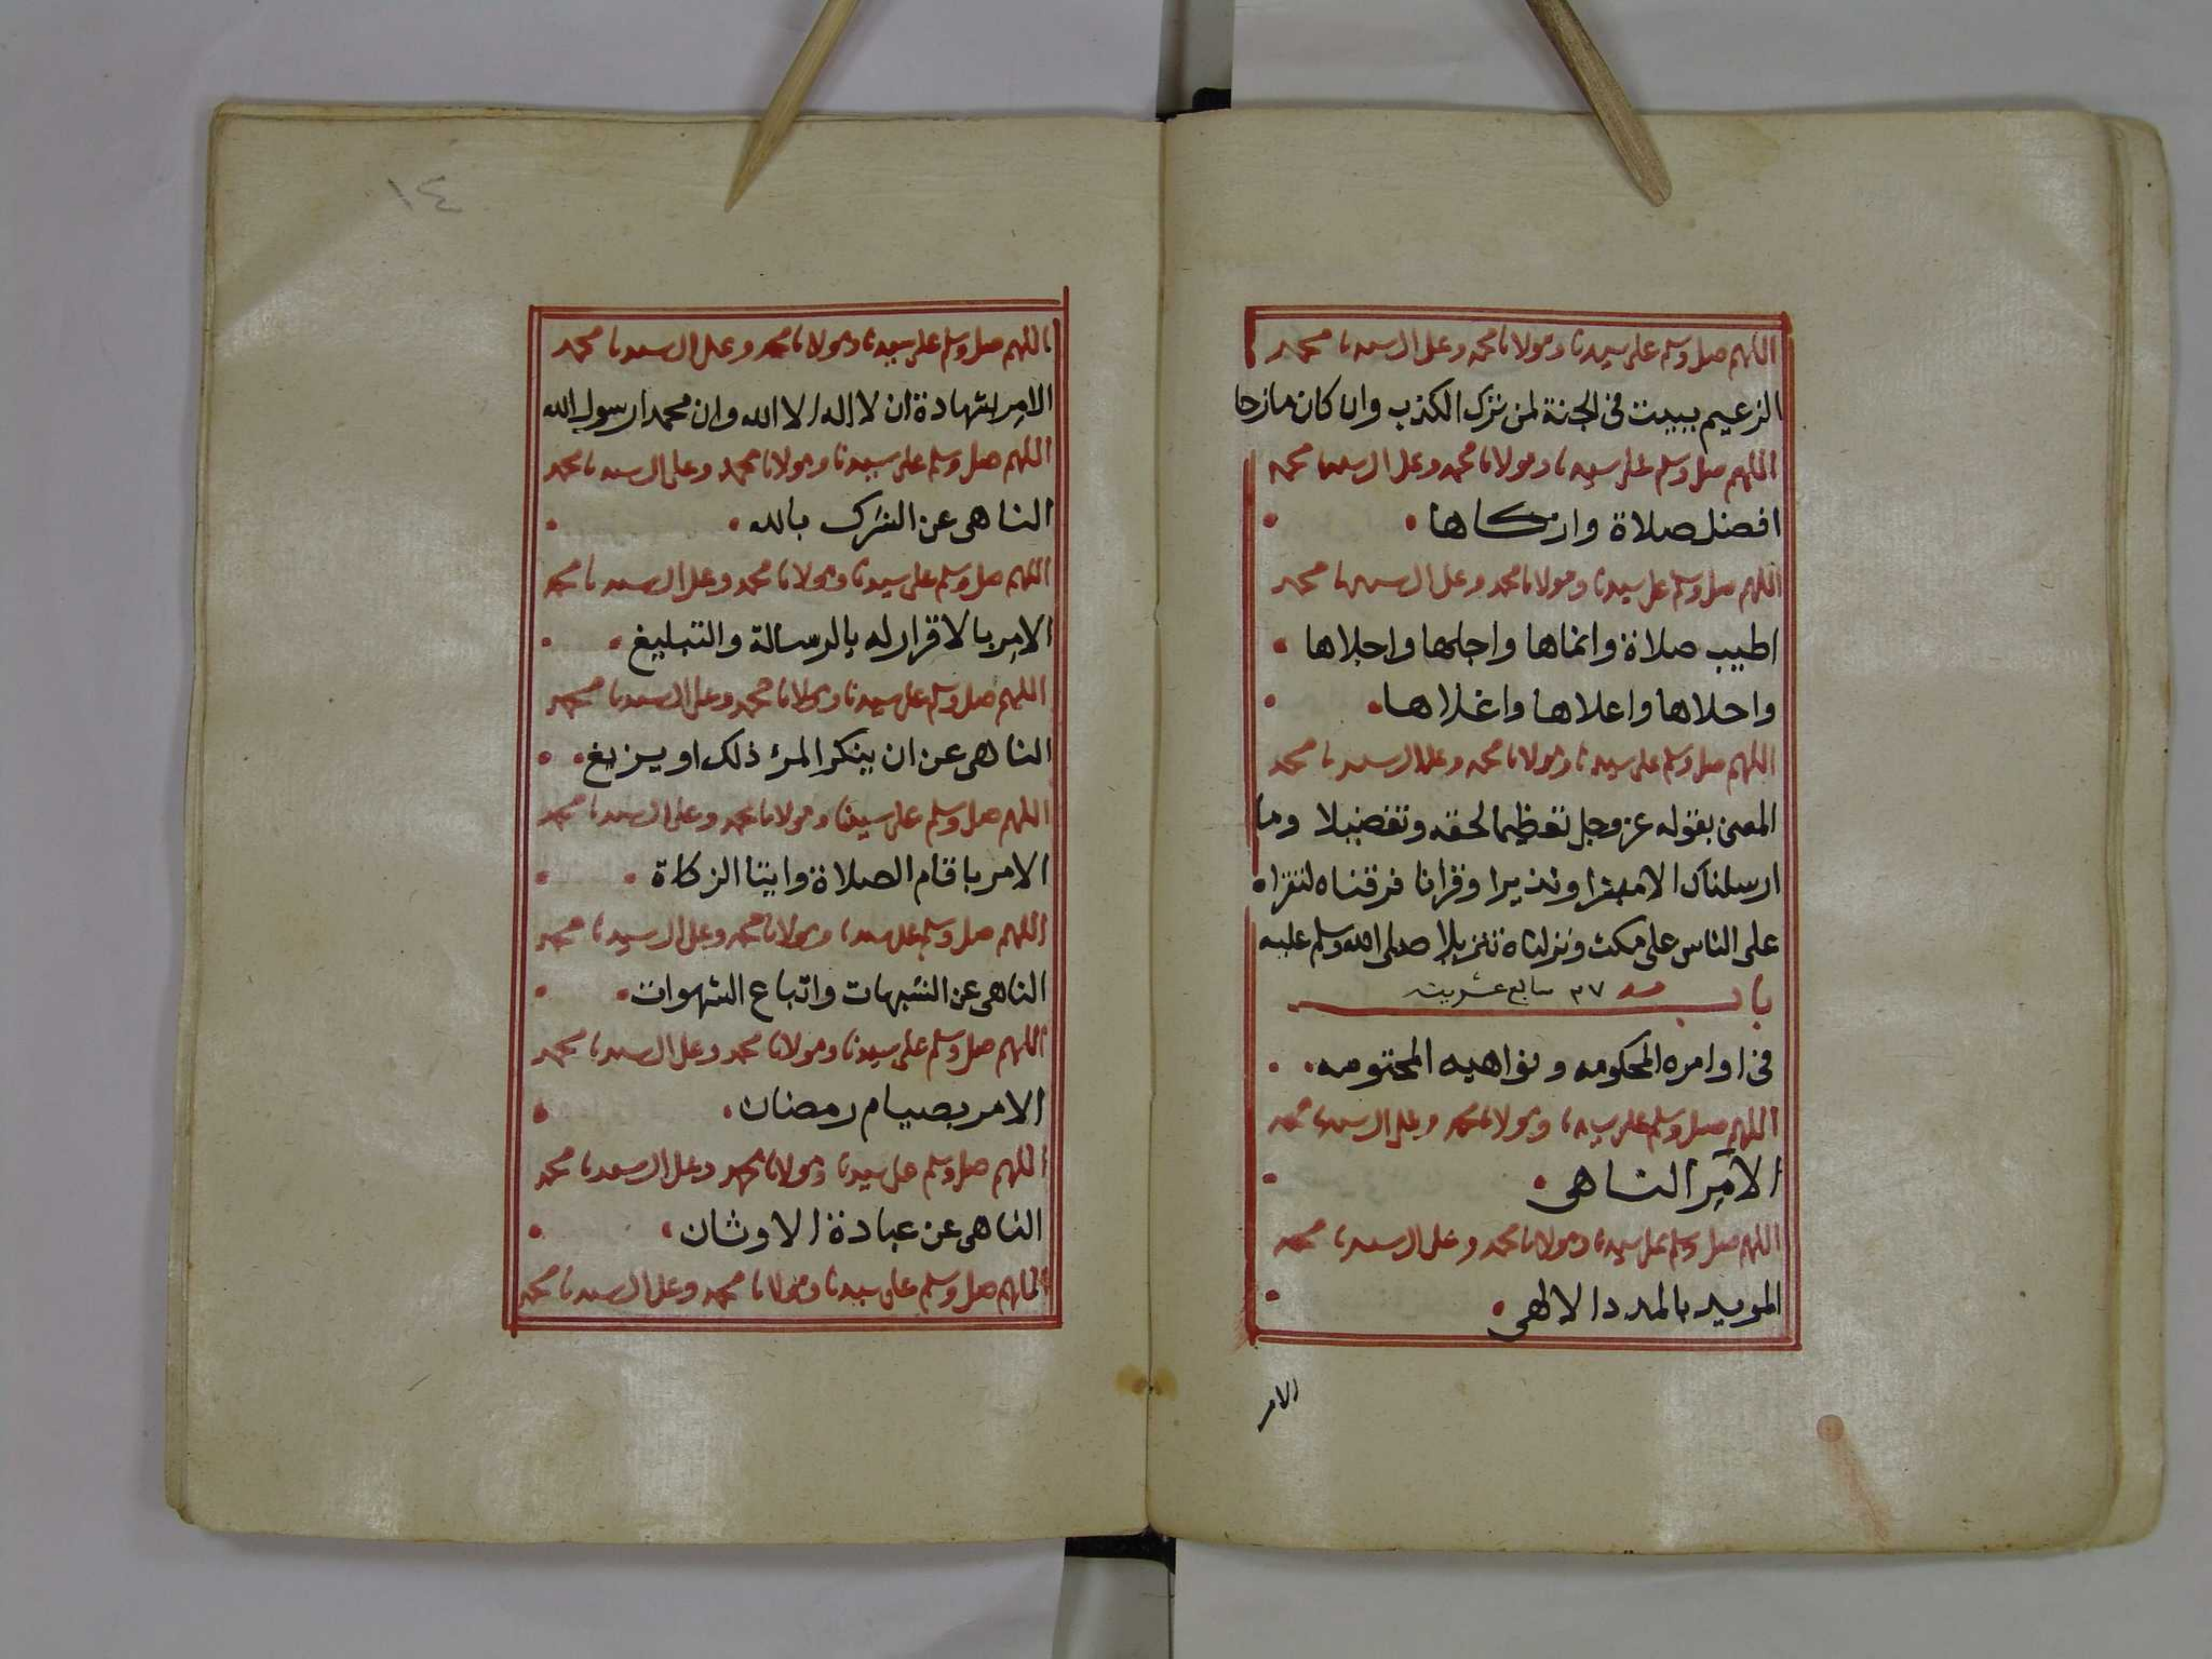 اللهم صل وسلم على سيدنا ومولانا محمد وعلى ال سيدنا محمد
الزعيم ببيت فى الجنة لمن ترك الكذب وان كان مازحا
اللهم صل وسلم على سيدنا ومولانا محمد وعلى ال سيدنا محمد
افضل صلاة وازكاها
اللهم صل وسلم على سيدنا ومولانا محمد وعلى ال سيدنا محمد
اطيب صلاة وانماها واجلها واجلاها
واحلاها واعلاها واغلاها
اللهم صل وسلم على سيدنا ومولانا محمد وعلى ال سيدنا محمد
المعنى بقوله عز وجل تعظيما لحقه وتفضيلا وما
ارسلناك الا مبشرا ونذيرا وقرانا فرقناه لتقراه
على الناس على مكث ونزلناه تنزيلا صلى الله وسلم عليه
باب ٢٧ سابع عشرين
فى اوامره المحكومه ونواهيه المحتومه
اللهم صل وسلم على سيدنا ومولانا محمد وعلى ال سيدنا محمد
الآمر الناهى
اللهم صل وسلم على سيدنا ومولانا محمد وعلى ال سيدنا محمد
المويد بالمدد الالهى
الامر
١٤
اللهم صل وسلم على سيدنا ومولانا محمد وعلى ال سيدنا محمد
الامر بشهادة ان لا اله الا الله وان محمدا رسول الله
اللهم صل وسلم على سيدنا ومولانا محمد وعلى ال سيدنا محمد
الناهى عن الشرك بالله
اللهم صل وسلم على سيدنا ومولانا محمد وعلى ال سيدنا محمد
الامر بالاقرار له بالرسالة والتبليغ
اللهم صل وسلم على سيدنا ومولانا محمد وعلى ال سيدنا محمد
الناهى عن ان ينكر المرء ذلك او يزيغ
اللهم صل وسلم على سيدنا ومولانا محمد وعلى ال سيدنا محمد
الامر باقام الصلاة وايتا الزكاة
اللهم صل وسلم على سيدنا ومولانا محمد وعلى ال سيدنا محمد
الناهى عن الشبهات واتباع الشهوات
اللهم صل وسلم على سيدنا ومولانا محمد وعلى ال سيدنا محمد
الامر بصيام رمضان
اللهم صل وسلم على سيدنا ومولانا محمد وعلى ال سيدنا محمد
الناهى عن عبادة الاوثان
اللهم صل وسلم على سيدنا ومولانا محمد وعلى ال سيدنا محمد